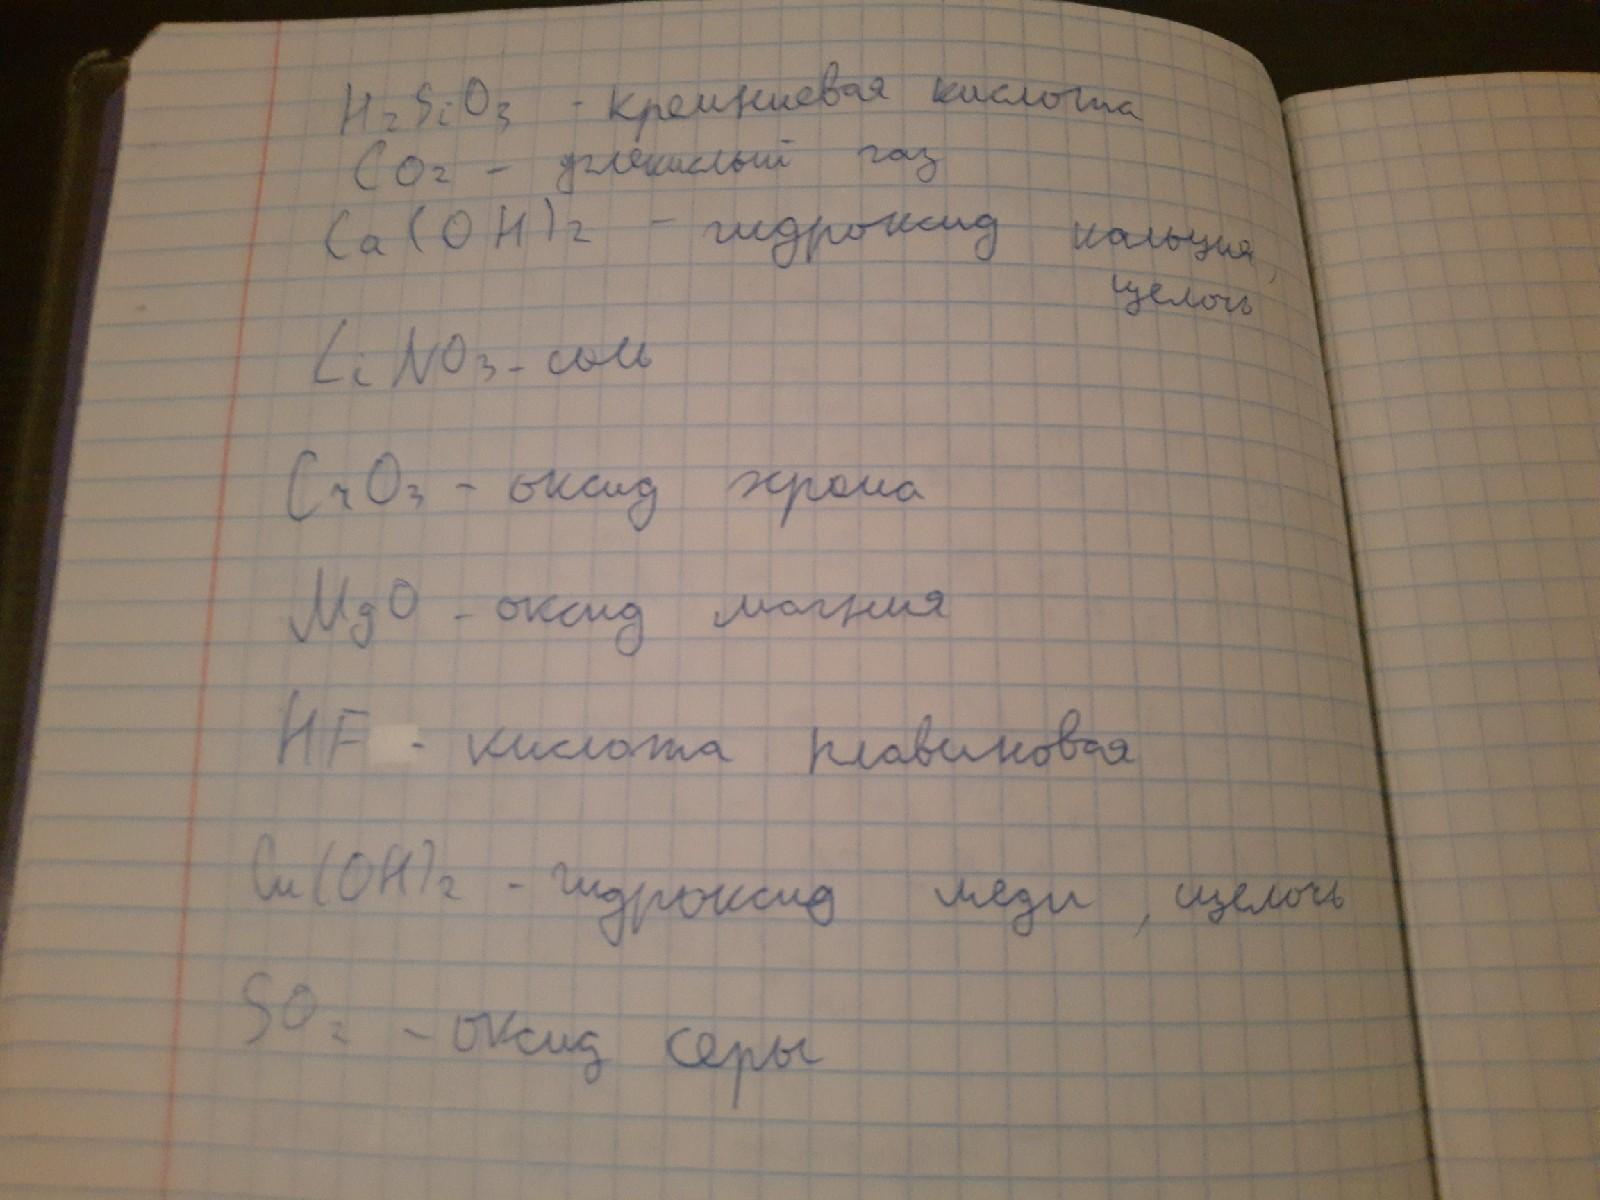 H₂SiO₃ - кремниевая кислота
CO₂ - углекислый газ
Ca(OH)₂ - гидроксид кальция,
щелочь
LiNO₃ - соль
CrO₃ - оксид хрома
MgO - оксид магния
HF - кислота плавиковая
Cu(OH)₂ - гидроксид меди, щелочь
SO₂ - оксид серы